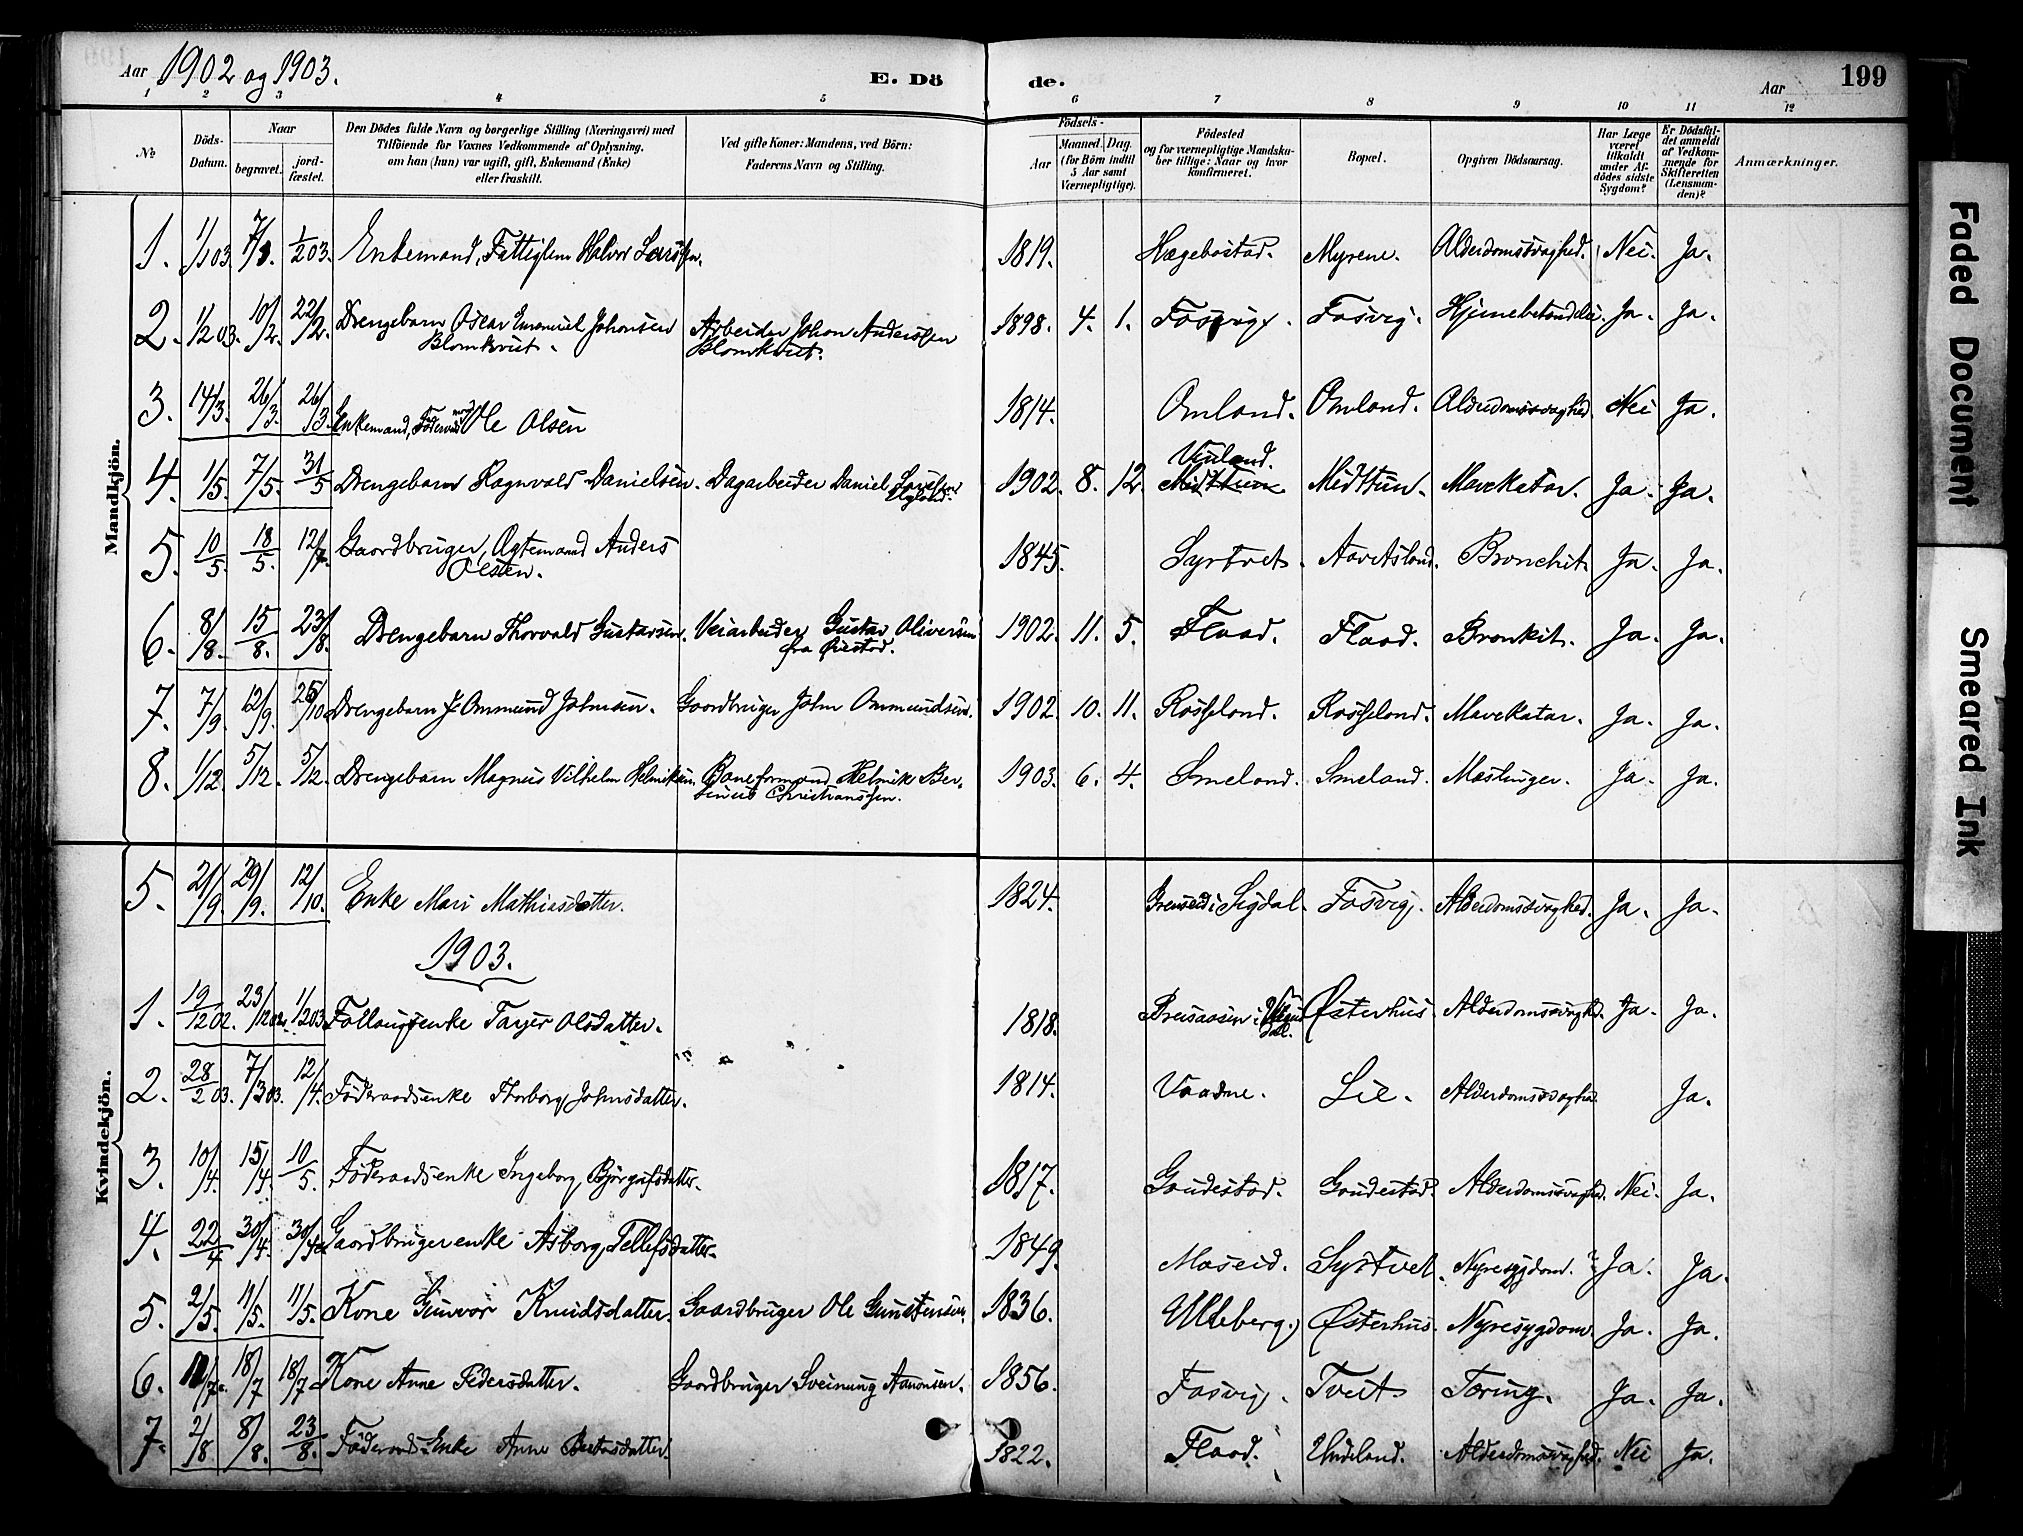 Aar 1902 og 1903. E. Dö de. Aar 199
1 2 3 4 5 6 7 8 9 10 11 12
№ Döds-Datum. Naar begravet. jordfæstet. Den Dödes fulde Navn og borgerlige Stilling (Næringsvei) med Tilföiende for Voxnes Vedkommende af Oplysning, om han (hun) var ugift, gift, Enkemand (Enke) eller fraskilt. Ved gifte Koner: Mandens, ved Börn: Faderens Navn og Stilling. Födsels- Aar Maaned. Dag. (for Börn indtil 5 Aar samt Værnepligtige). Födested og for værnepligtige Mandskaber tillige: Naar og hvor konfirmeret. Bopæl. Opgiven Dödsaarsag. Har Læge været tilkaldt under Afdödes sidste Sygdom? Er Dödsfaldet anmeldt af Vedkommende for Skifteretten (Lensmanden)? Anmærkninger.
Mandkjön.
1. 1/1 03. 7/1. 1/2 03. Enkemand, Fattiglem Halvor Larssen. 1819. Hægebostad. Myrene. Alderdomssvaghed. Nei. Ja.
2. 1/2 03. 10/2. 22/2. Drengebarn Oscar Emanuel Johansen Arbeider Johan Anderssen 1898. 4. 1. Fosvig. Fosvig. Ja. Ja.
Blomkvist. Blomkvist.
3. 14/3. 26/3. 26/3. Enkemand, Ole Olsen 1814. Omland. Omland. Alderdomssvaghed Nei Ja.
Vinland.
4. 1/5. 7/5. 31/5 Drengebarn Ragnvald Danielsen. Dagarbeider Daniel 1902. 8. 12. Midttun Midttun. Mavekatar. Ja. Ja.
5. 10/5. 18/5. 12/7. Gaardbruger, Ægtemand Anders 1845. Syrtvet. Bronchit. Ja. Ja.
Olsen.
6. 8/8. 15/8. 23/8. Drengebarn Thorvald Gustavsen. Veiarbeider Gustav Oliversen 1902. 11. 5. Flaad. Flaad. Bronkit. Ja. Ja.
fra Øiestad.
7. 7/9. 12/9. 25/10. Drengebarn Ommund Johnsen. Gaardbruger John Ommundsen. 1902. 10. 11. Rosseland. Rosseland. Mavekatar. Ja. Ja.
8. 1/12. 5/12. 5/12. Drengebarn Magnus Vilhelm Helmiksen. Baneformand Helmik Ber- 1903. 6. 4. Smeland. Smeland. Mæslinger. Ja. Ja.
Christianssen.
Kvindekjön.
5. 21/9. 29/9. 12/10. Enke Mari Mathisdatter. 1824. Sigdal. Fosvig. Alderdomssvaghed. Ja. Ja.
1903.
1. 19/12 02. 23/12 02. 1/2 03. Tarjer Olsdatter. 1818. Østerhus. Alderdomssvaghed. Ja. Ja.
2. 28/2 03. 7/3 03. 12/4. Föderaadsenke Thorborg Johnsdatter. 1814. Vaadne. Lie. Alderdomssvaghed Ja.
3. 10/4. 15/4. 10/5. Föderaadsenke Ingeborg Björgulfsdatter. 1817. Gaudestad. Gaudestad. Alderdomssvaghed. Nei. Ja.
4. 22/4 30/4. 30/4 Gaardbrugerenke Asborg Tellefsdatter. 1849. Moseid. Syrtvet. Nyresygdom. Ja. Ja.
5. 2/5. 11/5. 11/5. Kone Gunvor Knudsdatter. Gaardbruger Ole Gunstensen. 1836. Uleberg. Østerhus. Nyresygdom. Ja. Ja.
6. 11/7. 18/7 18/7 Kone Anne Pedersdatter. Gaardbruger Sveinung Aanonsen. 1856. Fosvig. Tveit Tæring. Ja. Ja.
7. 2/8. 8/8. 23/8. Föderaads Enke Anne 1822. Flaad. Alderdomssvaghed. Nei Ja.
Faded Document
Smeared Ink